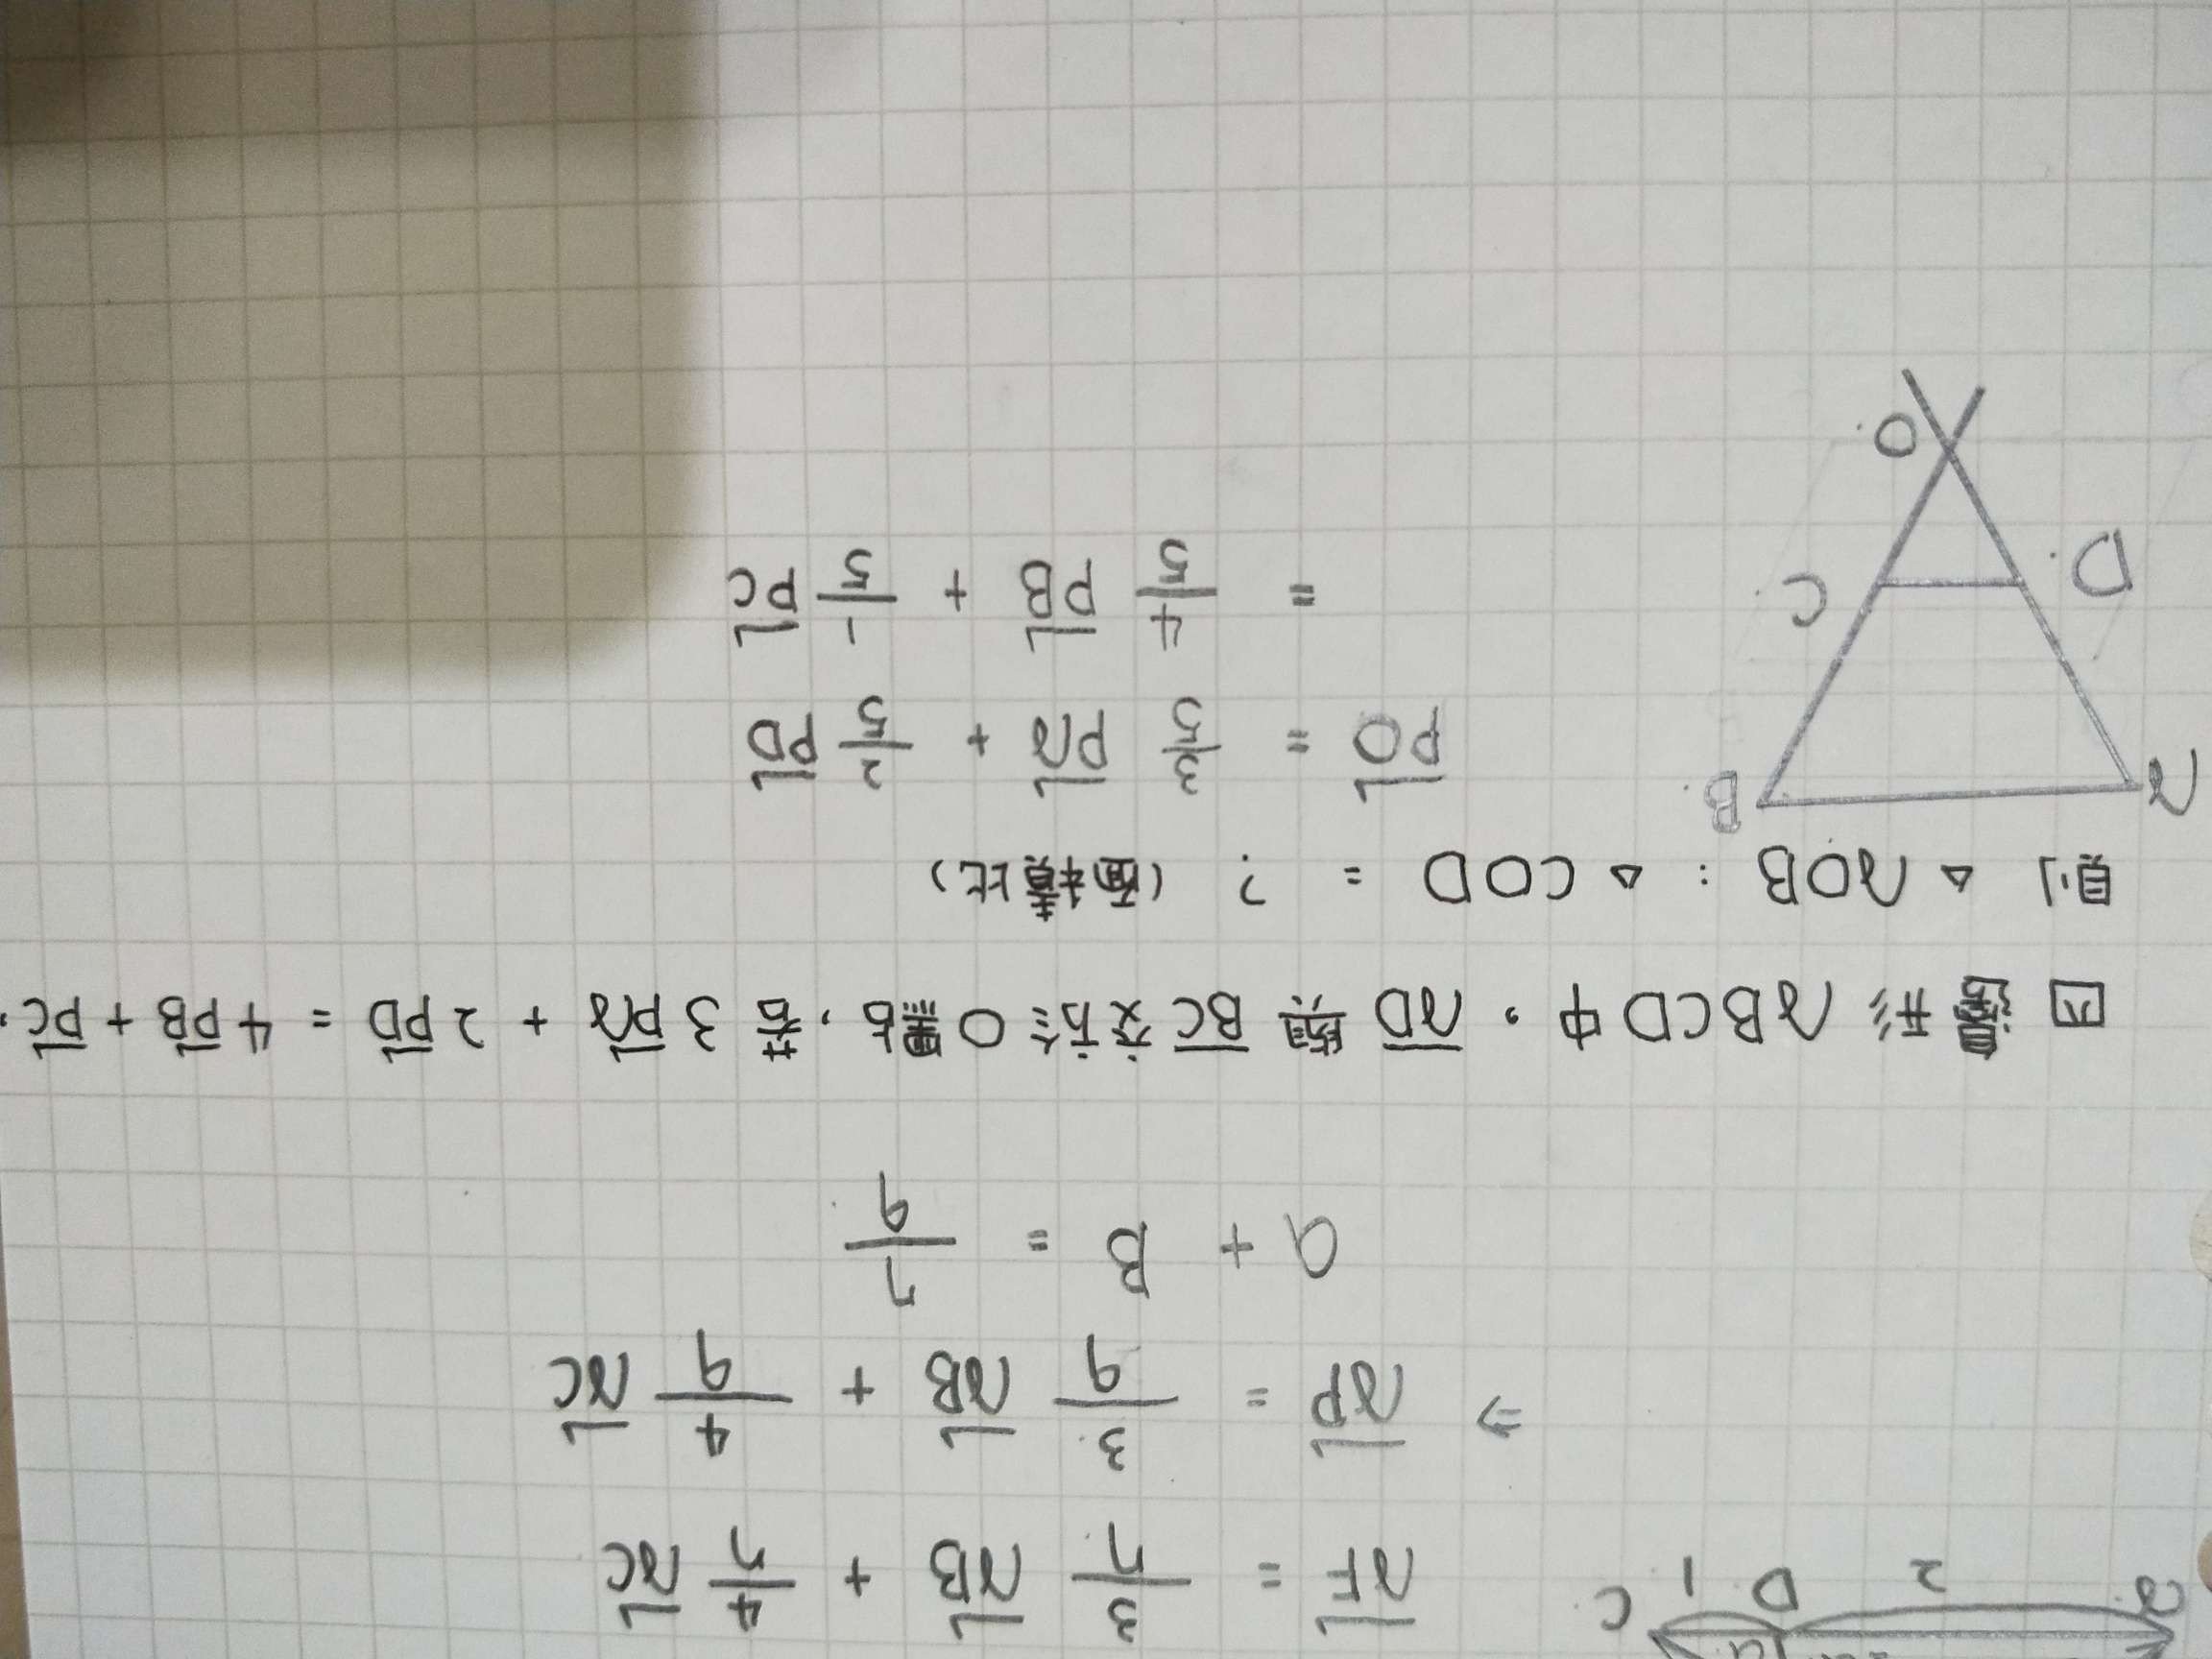 A 2 D 1 C
AF = 3/7 AB + 4/7 AC
⇒ AP = 3/9 AB + 4/9 AC
a + B = 7/9
四邊形 ABCD 中, AD 與 BC 交於 O 點, 若 3PA + 2PD = 4PB + PC,
則 △AOB : △COD = ? (面積比)
A B
PO = 3/5 PA + 2/5 PD
= 4/5 PB + 1/5 PC
D C
O